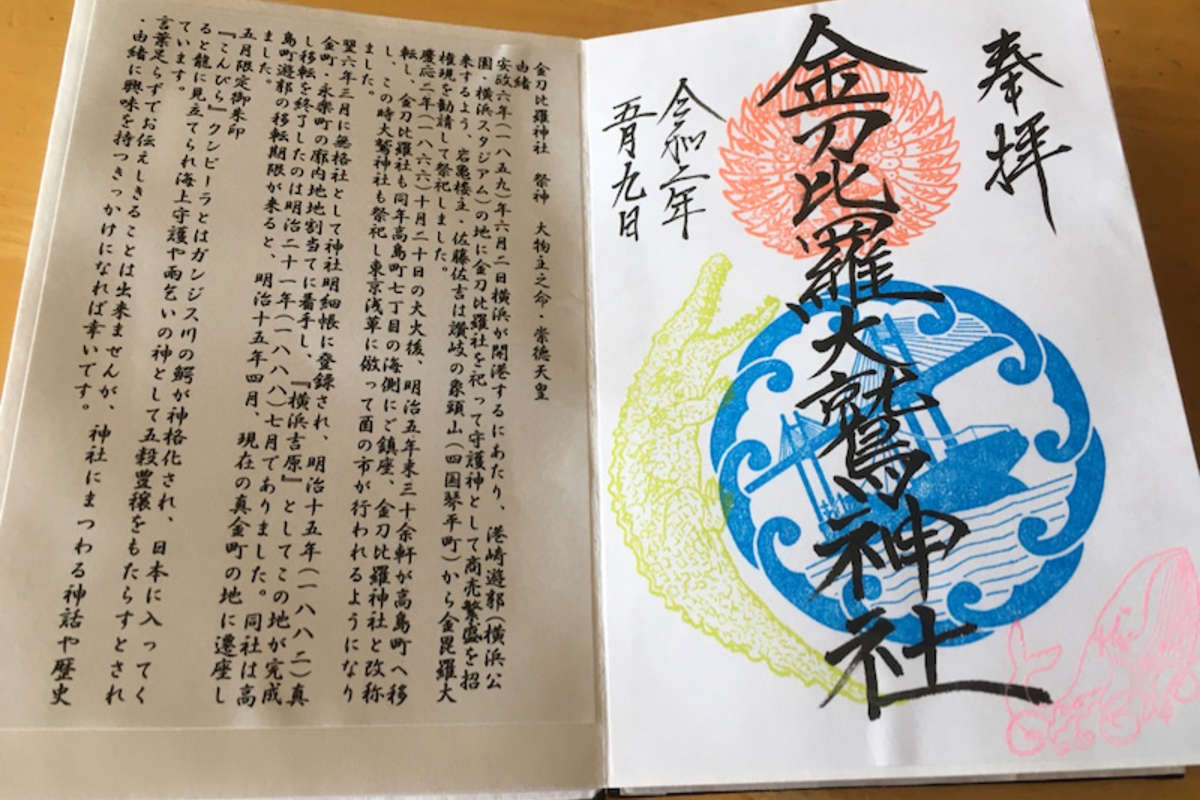 奉拝
金刀比羅大鷲神社
令和二年
五月九日
金刀比羅神社　祭神　大物主之命・崇徳天皇
由緒
安政六年(一八五九)年六月二日横浜が開港するにあたり、港崎遊郭(横浜公
園・横浜スタジアム)の地に金刀比羅社を祀って守護神として商売繁盛を招
来するよう、岩亀楼主・佐藤佐吉は讃岐の象頭山(四国琴平町)から金毘羅大
権現を勧請して祭祀しました。
慶応二年(一八六六)十月二十日の大火後、明治五年東三十余軒が高島町へ移
転し、金刀比羅社も同年高島町七丁目の海側にご鎮座、金刀比羅神社と改称
し、この時大鷲神社も祭祀し東京浅草に倣って酉の市が行われるようになり
ました。
翌六年三月に無格社として神社明細帳に登録され、明治十五年(一八八二)真
金町・永楽町の廓内地地割当てに着手し、『横浜吉原』としてこの地が完成
し移転を終了したのは明治二十一年(一八八八)七月でありました。同社は高
島町遊郭の移転期限が来ると、明治十五年四月、現在の真金町の地に遷座し
ました。
五月限定御朱印
『こんぴら』クンビーラとはガンジス川の鰐が神格化され、日本に入ってく
ると龍に見立てられ海上守護や雨乞いの神として五穀豊穣をもたらすとされ
ています。
言葉足らずでお伝えしきることは出来ませんが、神社にまつわる神話や歴史
・由緒に興味を持つきっかけになれば幸いです。